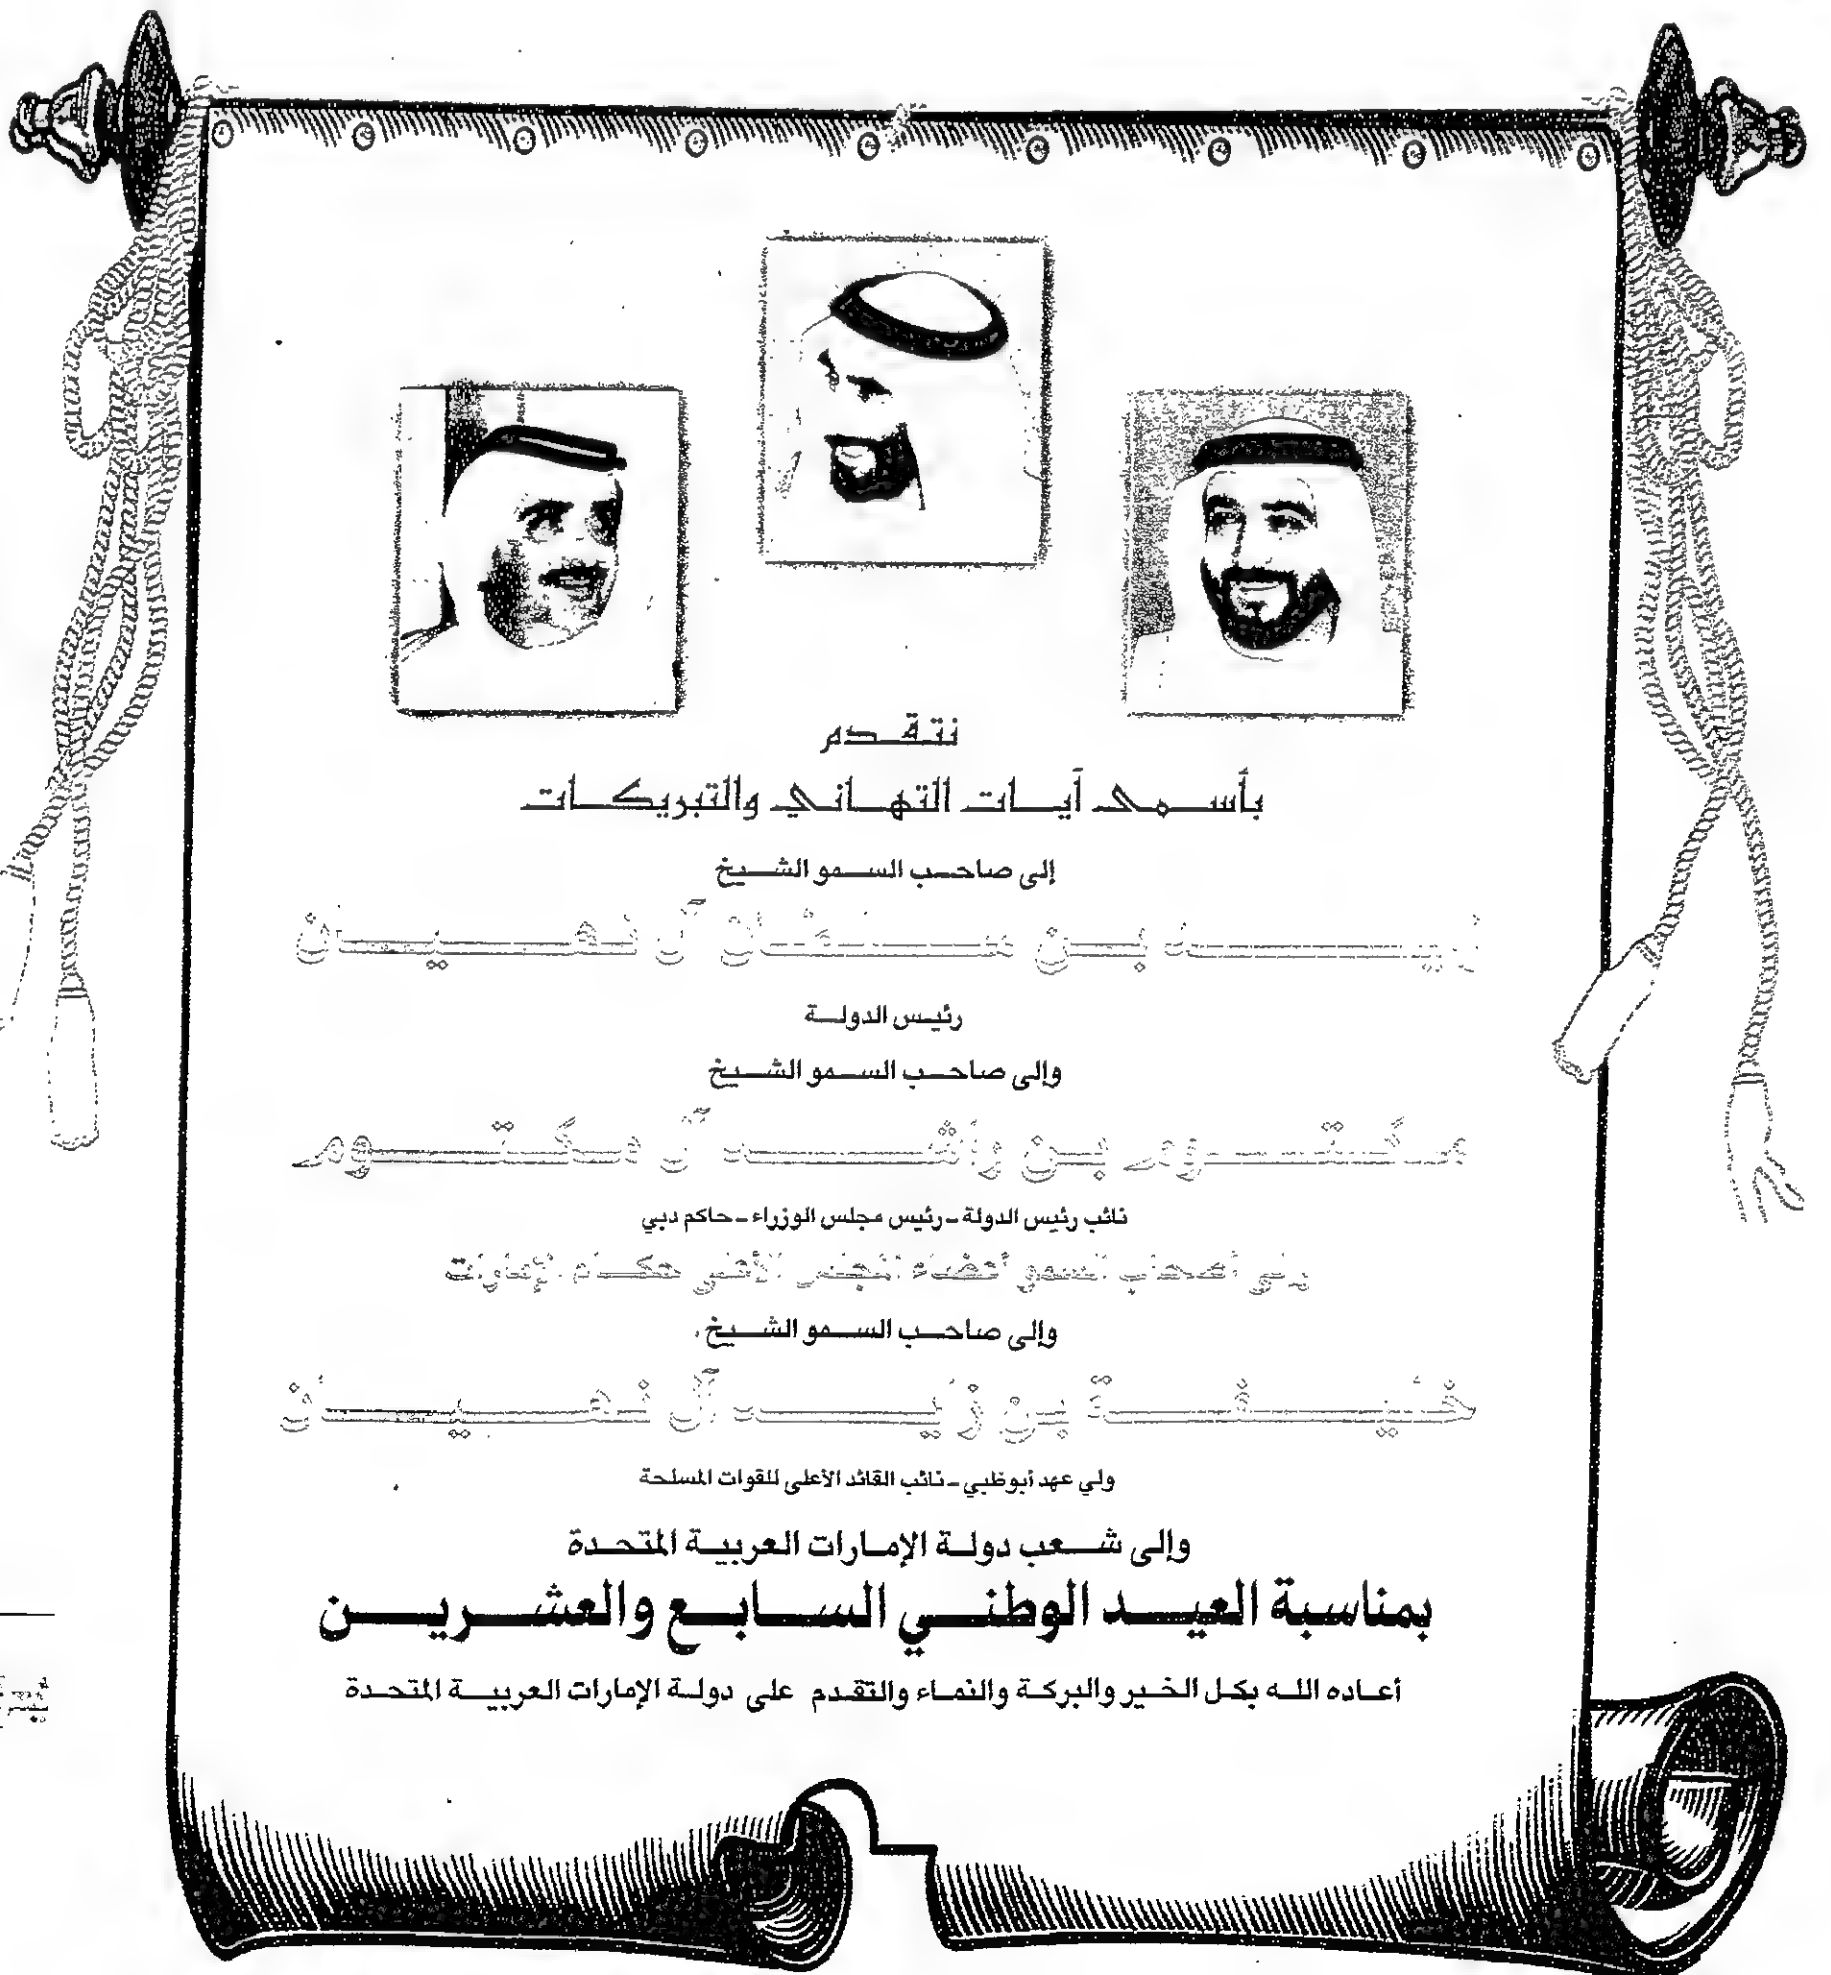 نتقدم
بأسمى آيات التهاني والتبريكات
إلى صاحب السمو الشيخ
زايد بن سلطان آل نهيان
رئيس الدولة
وإلى صاحب السمو الشيخ
مكتوم بن راشد آل مكتوم
نائب رئيس الدولة - رئيس مجلس الوزراء - حاكم دبي
وإلى أصحاب السمو أعضاء المجلس الأعلى حكام الإمارات
وإلى صاحب السمو الشيخ
خليفة بن زايد آل نهيان
ولي عهد أبوظبي - نائب القائد الأعلى للقوات المسلحة
وإلى شعب دولة الإمارات العربية المتحدة
بمناسبة العيد الوطني السابع والعشرين
أعاده الله بكل الخير والبركة والنماء والتقدم على دولة الإمارات العربية المتحدة